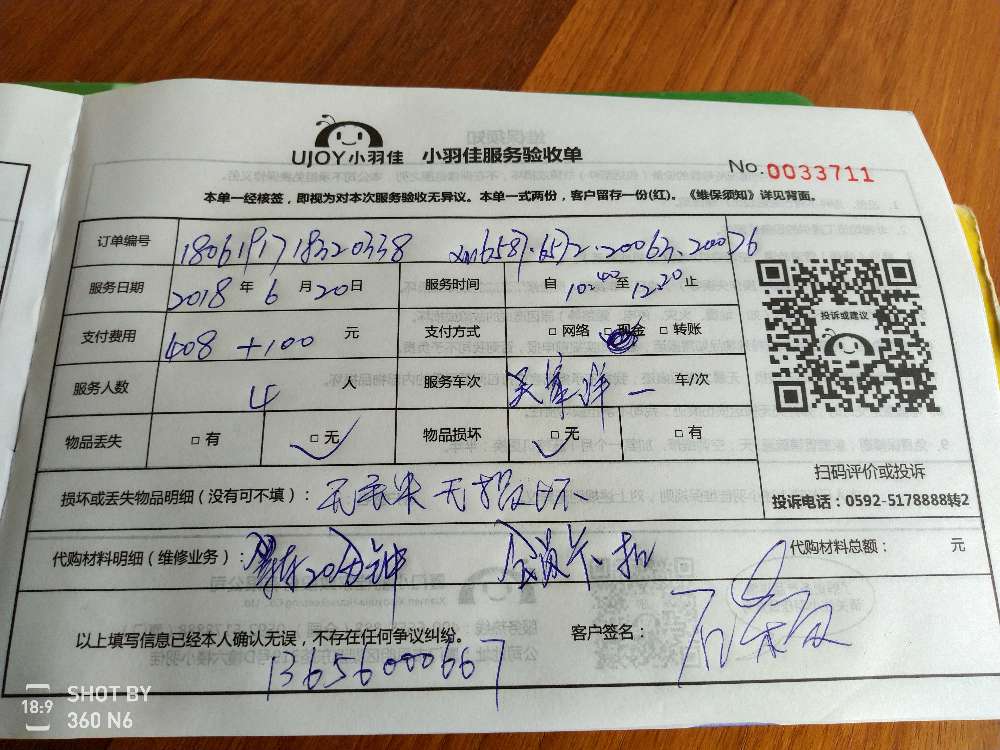 UJOY小羽佳 小羽佳服务验收单
No.0033711
本单一经核签，即视为对本次服务验收无异议。本单一式两份，客户留存一份(红)。《维保须知》详见背面。
订单编号
服务日期 2018 年 6 月 20 日 服务时间 自 10:40 至 12:20 止
支付费用 408 +100 元 支付方式 □ 网络 □ 现金 □ 转账
服务人数 4 人 服务车次 车/次
物品丢失 □ 有 □ 无 物品损坏 □ 无 □ 有
投诉或建议
扫码评价或投诉
投诉电话：0592-5178888转2
损坏或丢失物品明细（没有可不填）： 无丢失 无损坏
代购材料明细（维修业务）： 20分钟 代购材料总额： 元
以上填写信息已经本人确认无误，不存在任何争议纠纷。 客户签名：
13656000667
SHOT BY
18:9
360 N6